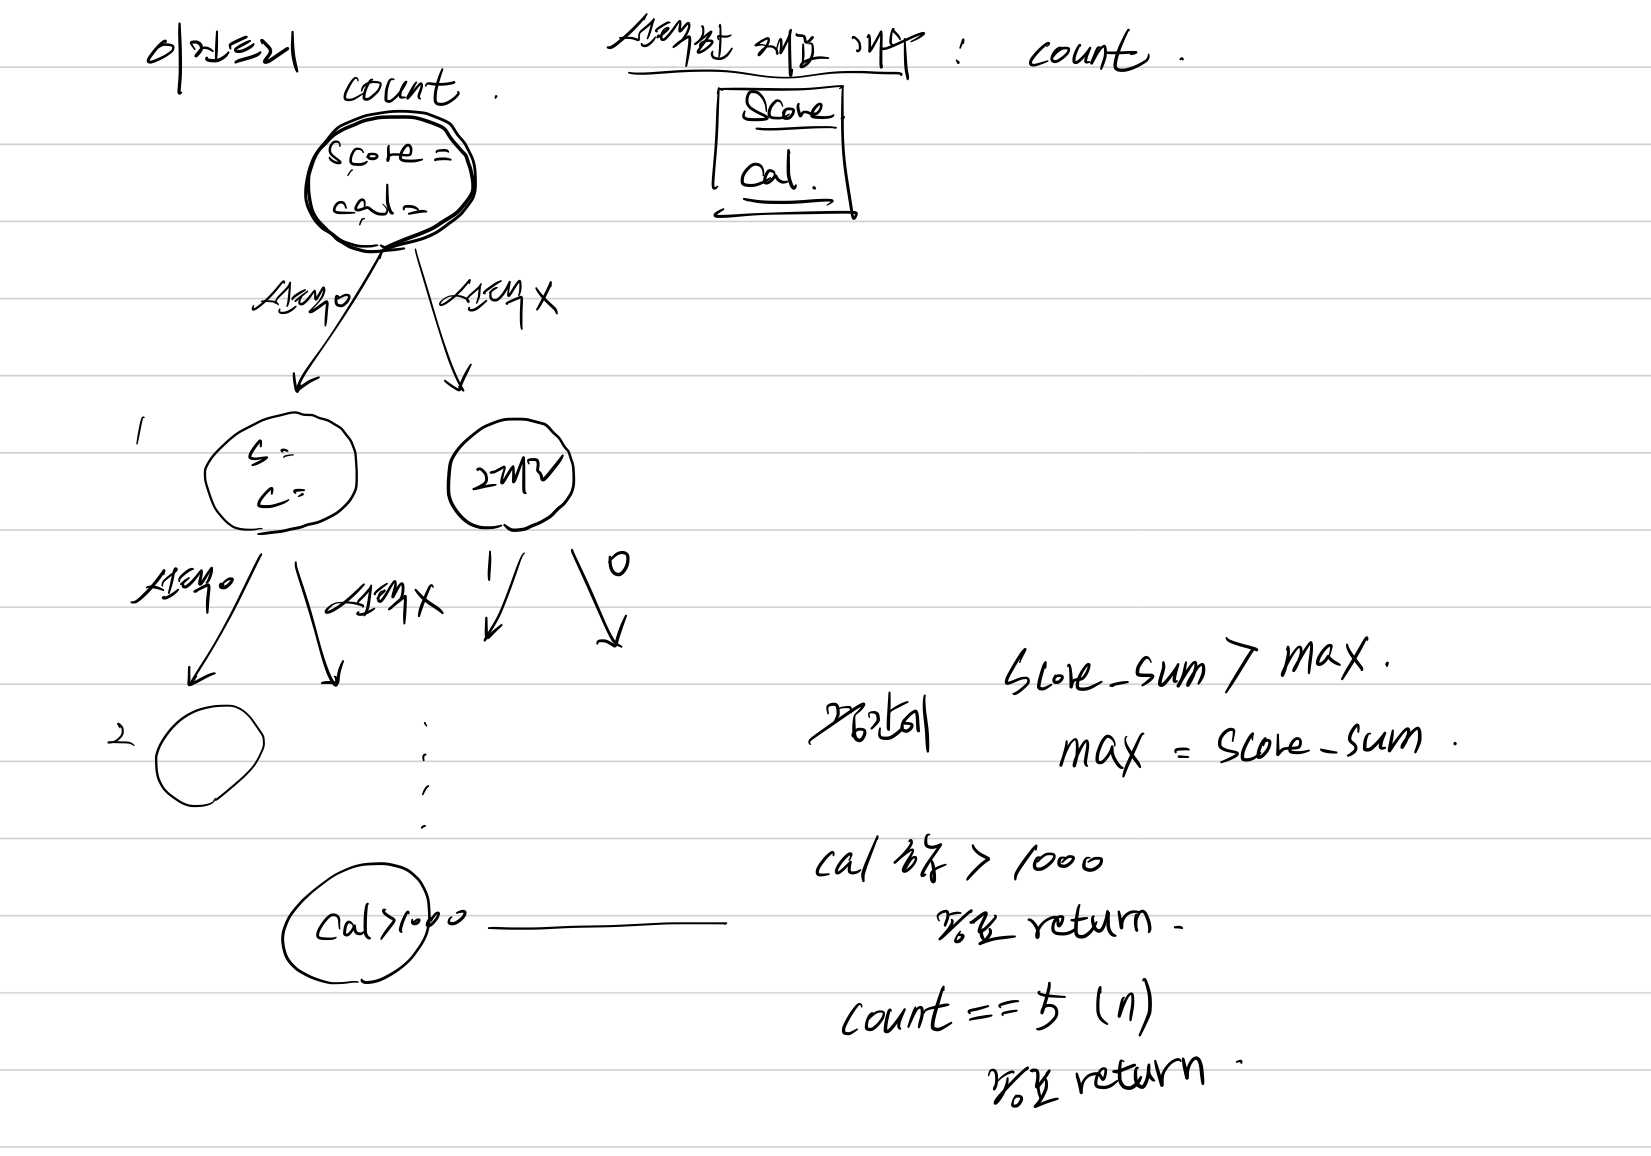 이진트리
선택한 재료 개수 : count.
count.
score =
cal =
score
cal.
선택O
선택X
1
s =
c =
그대로
선택O
선택X
1
0
2
중간에
score_sum > max.
max = score_sum.
cal 합 > 1000
종료 return.
cal>1000
count == 5 (n)
종료 return.